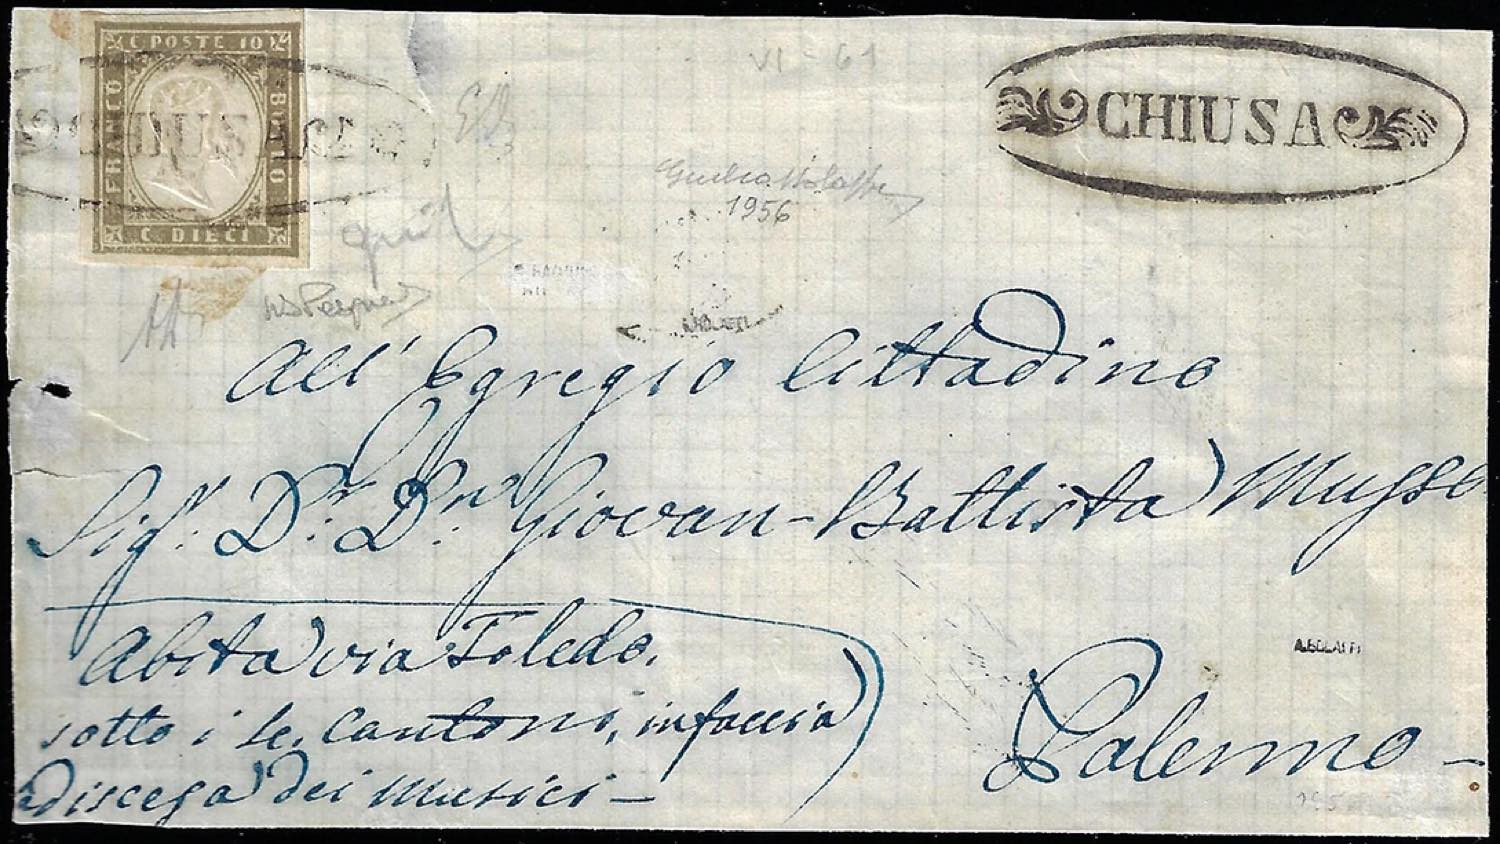 C. POSTE 10
FRANCO
BOLLO
C. DIECI
CHIUSA
VI - 61
1956
All' Egregio Cittadino
Sigr. Dr. Dn. Giovan-Battista Musso
Abita via Toledo.
sotto i
Cantoni, in faccia
a discesa dei Musici —
Palermo —
A.BOLAFFI